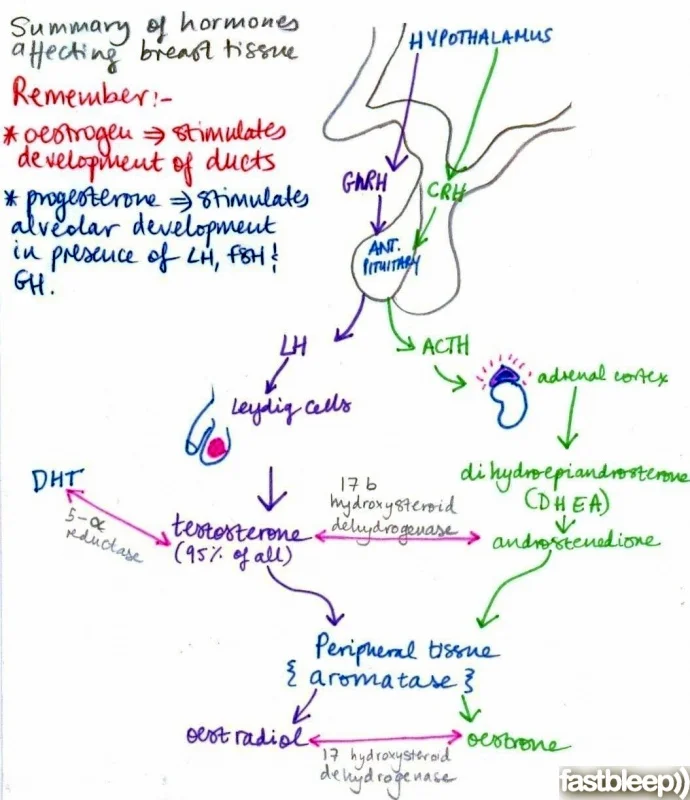 Summary of hormones
affecting breast tissue
Remember:-
* oestrogen ⇒ stimulates
development of ducts
* progesterone ⇒ stimulates
alveolar development
in presence of LH, FSH &
GH.
HYPOTHALAMUS
GnRH
CRH
ANT.
PITUITARY
LH
ACTH
Leydig cells
adrenal cortex
DHT
5-α
reductase
testosterone
(95% of all)
17 b
hydroxysteroid
dehydrogenase
dihydroepiandrosterone
(DHEA)
androstenedione
Peripheral tissue
{ aromatase }
oestradiol
17 hydroxysteroid
dehydrogenase
oestrone
fastbleep))